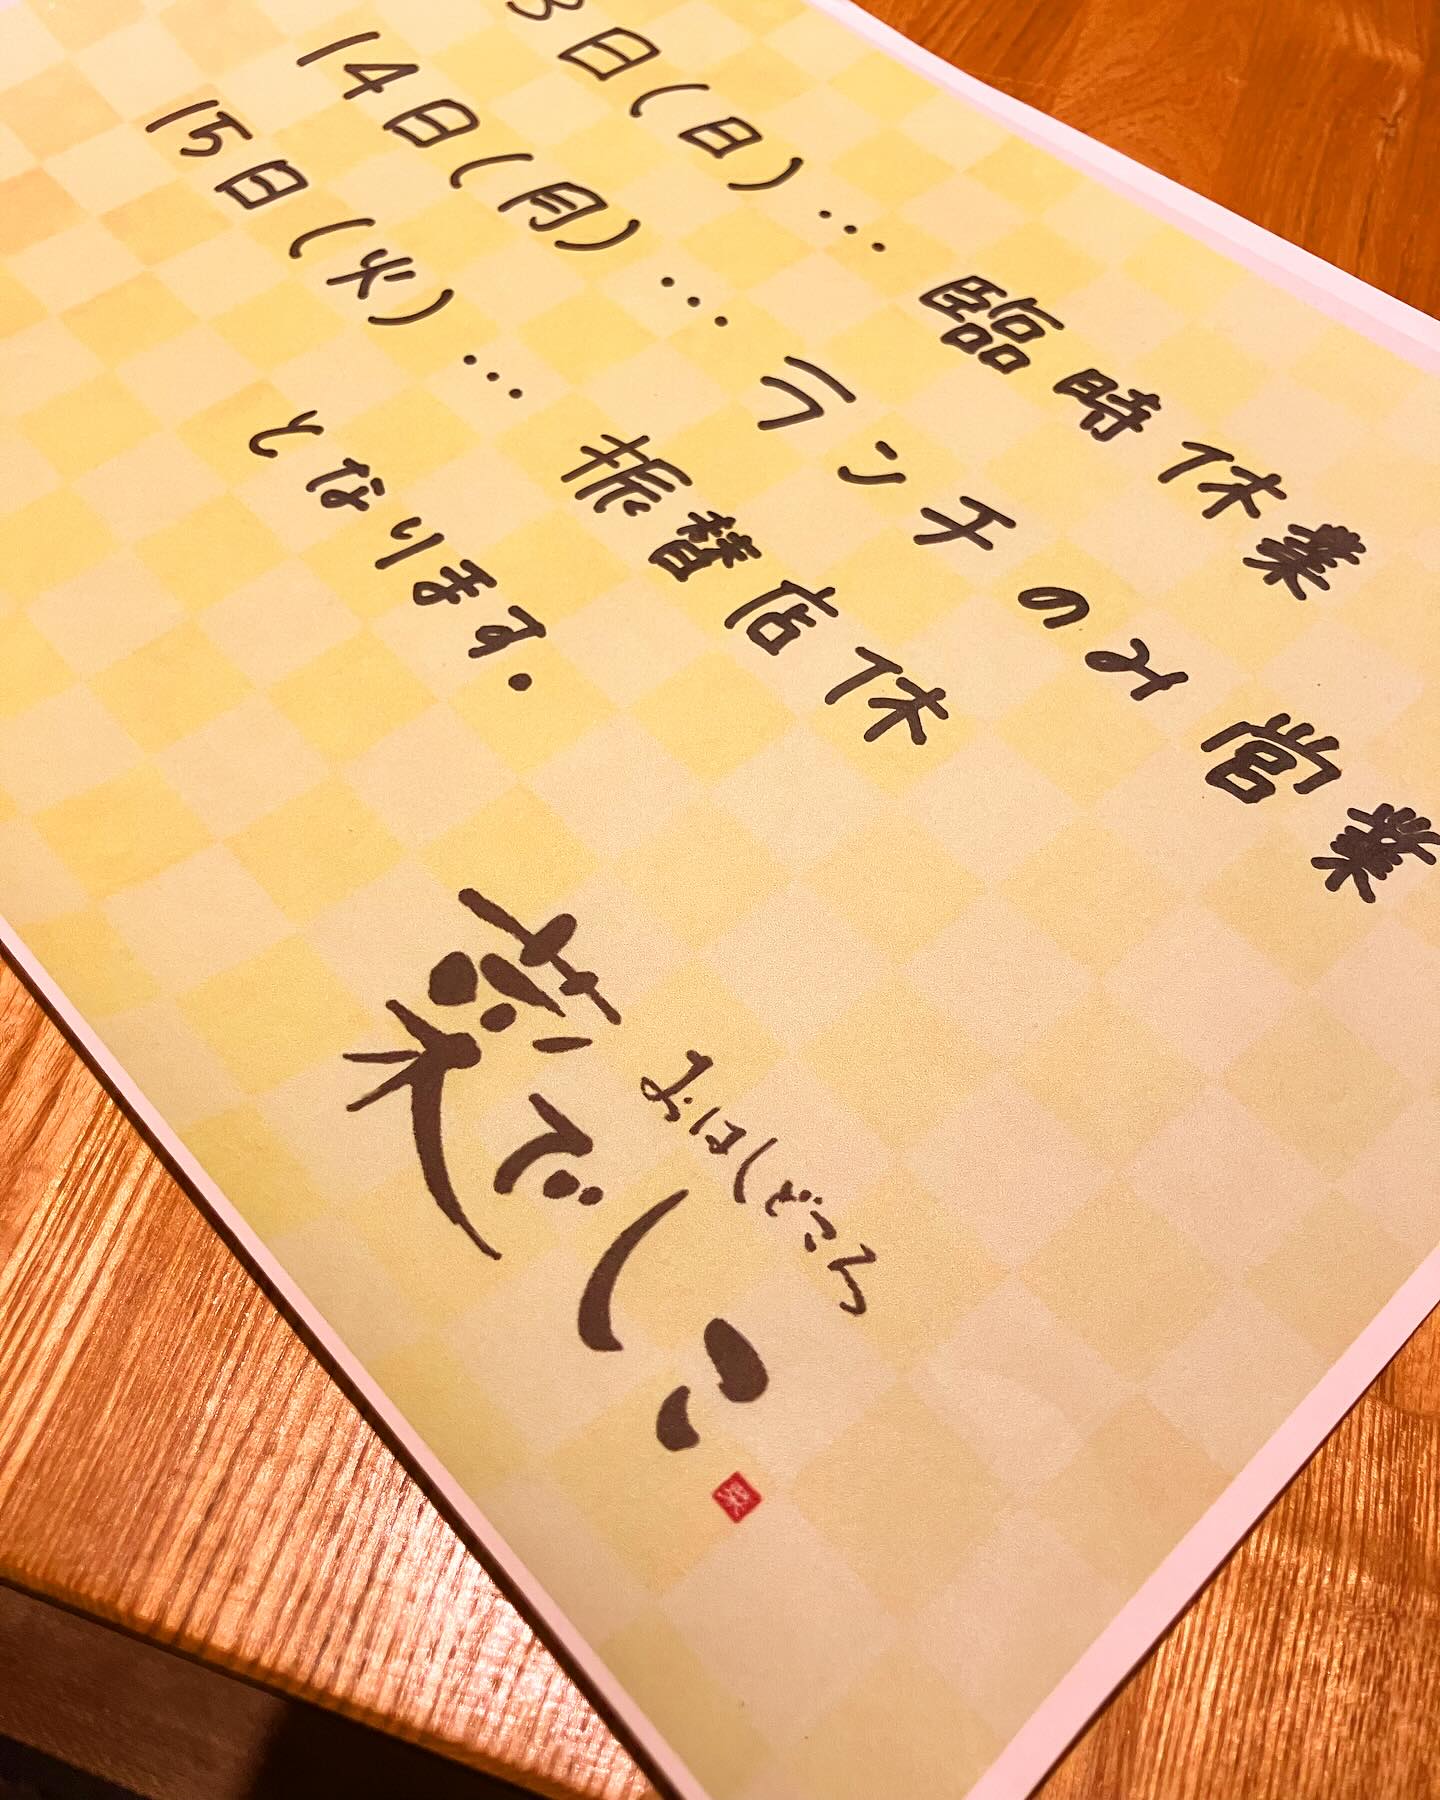 3日(日)… 臨時休業
14日(月)… ランチのみ営業
15日(火)… 振替店休
となります.
おはしどころ
菜でしこ
菜